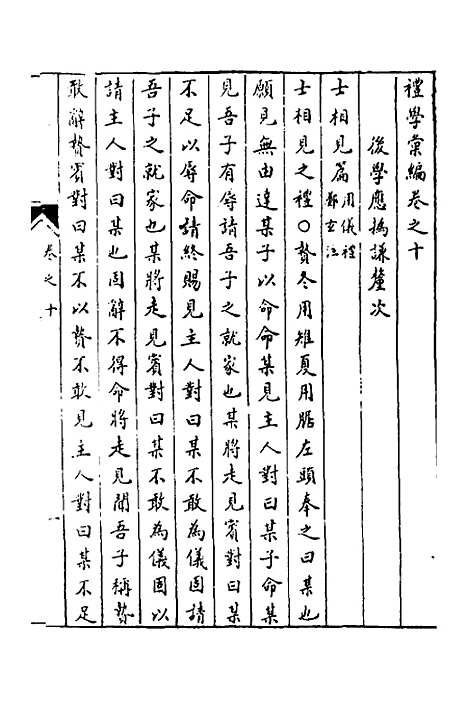 禮學彙編卷之十
後學應撝謙釐次
士相見篇用儀禮鄭玄注
士相見之禮〇贄冬用雉夏用腒左頭奉之曰某也
願見無由達某子以命命某見主人對曰某子命某
見吾子有辱請吾子之就家也某將走見賓對曰某
不足以辱命請終賜見主人對曰某不敢為儀固請
吾子之就家也某將走見賓對曰某不敢為儀固以
請主人對曰某也固辭不得命將走見聞吾子稱贄
敢辭贄賓對曰某不以贄不敢見主人對曰某不足
卷之十
一